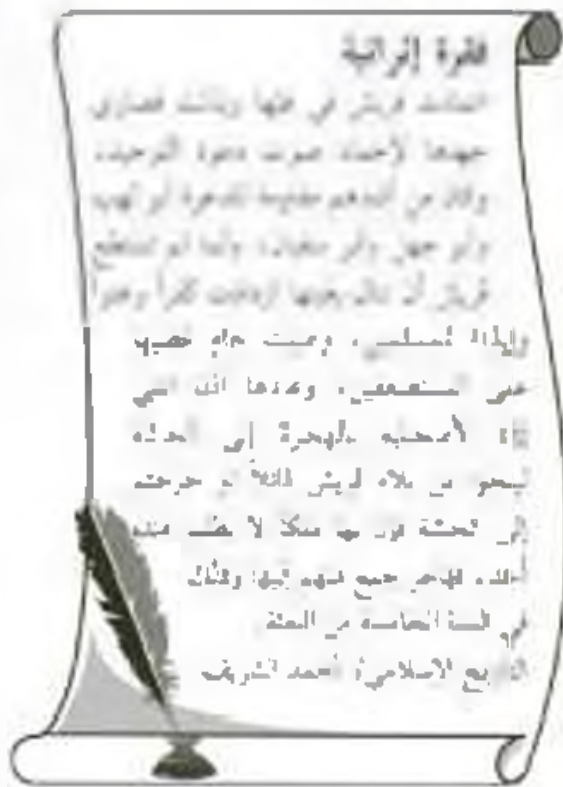 فقرة إثرائية
قريش في وبذلت قصارى
جهدها لإخماد صوت دعوة التوحيد،
وكان من أشدهم مقاومة للدعوة أبو لهب
وأبو جهل وأبو سفيان، ولما لم تستطع
قريش أن تنال بغيتها ازدادت كفراً
وإيذاءً للمسلمين، وصبت جام غضبها
على المستضعفين، وعندها أذن النبي
لأصحابه بالهجرة إلى الحبشة
من بلاء قريش قائلاً لو خرجتم
إلى الحبشة فإن بها ملكاً لا يظلم عنده
أحد، فهاجر جمع منهم إليها وذلك
في السنة الخامسة من البعثة
التاريخ الإسلامي، أحمد الشريف